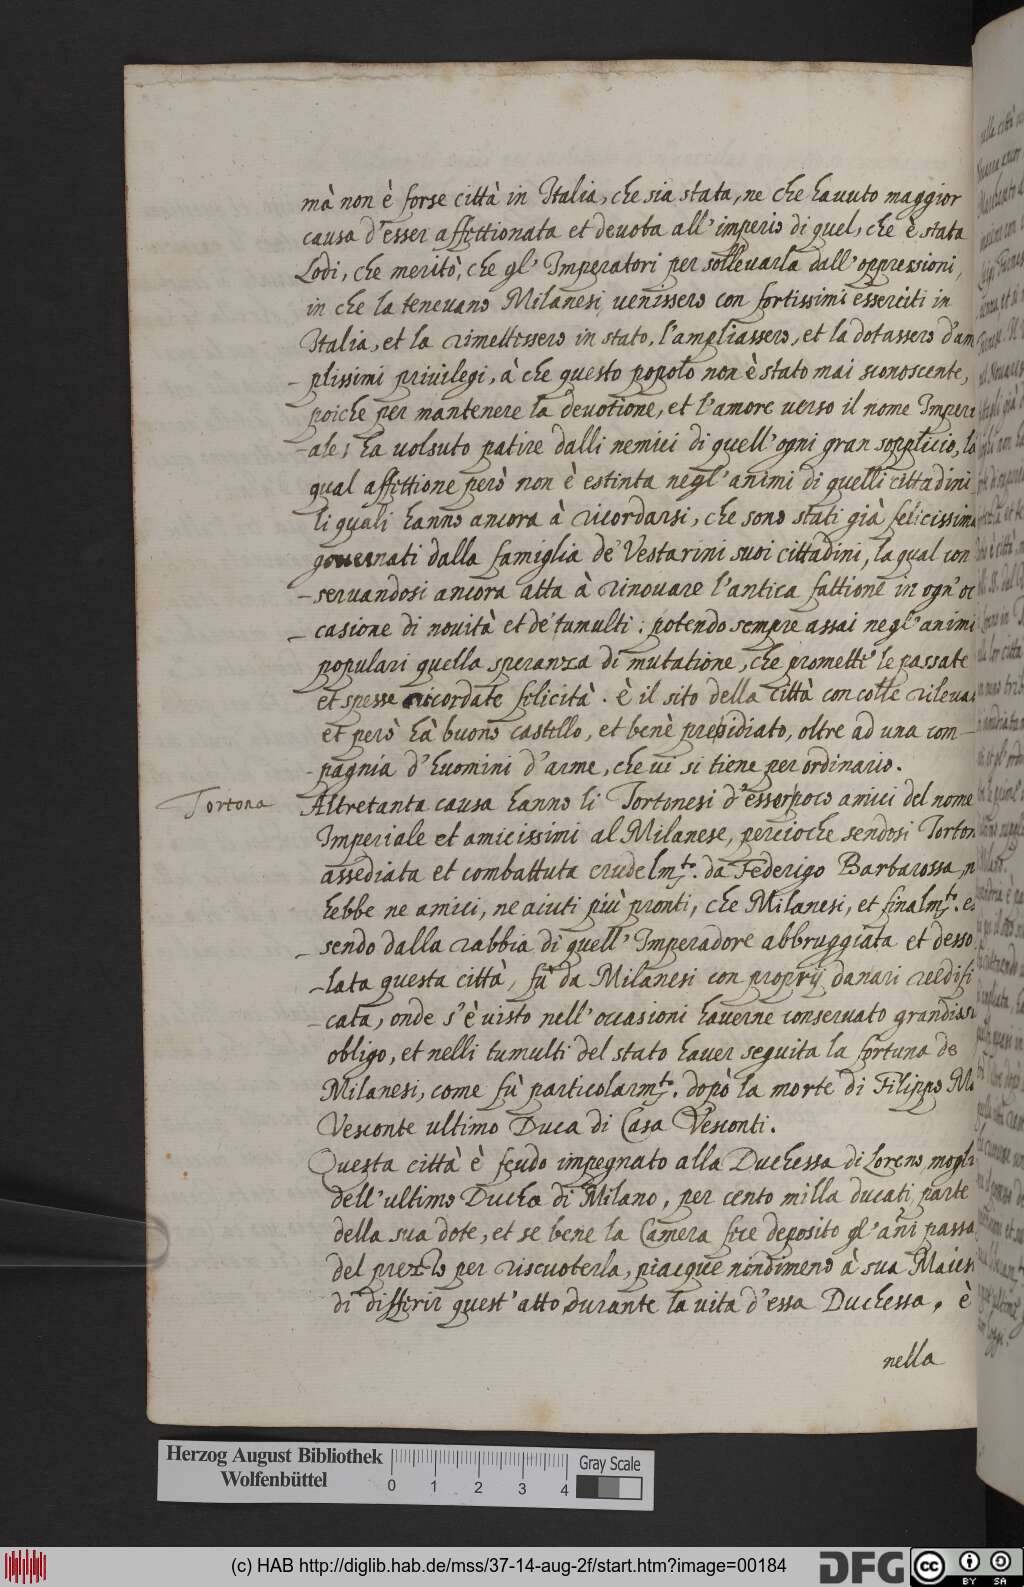 mà non è forse città in Italia, che sia stata, ne che havuto maggior
causa d'esser affettionata et devota all'imperio di quel, che è stata
Lodi, che meritò, che gl'Imperatori per sollevarla dall'oppressioni,
in che la tenevano Milanesi, venissero con fortissimi esserciti in
Italia, et la rimettessero in stato, l'ampliassero, et la dotassero d'am
-plissimi privilegi, à che questo popolo non è stato mai sconoscente,
poiche per mantenere la devotione, et l'amore verso il nome Imperi
-ale; ha volsuto patire dalli nemici di quell'ogni gran sopplicio, la
qual affettione però non è estinta negl'animi di quelli cittadini
li quali hanno ancora à ricordarsi, che sono stati già felicissima
governati dalla famiglia de' Vestarini suoi cittadini, la qual con
-servandosi ancora atta à rinovare l'antica fattione in ogn'oc
-casione di novità et de' tumulti: potendo sempre assai negl'animi
populari quella speranza di mutatione, che promette le passate
et spesse ricordate felicità. è il sito della città con colle rileva
et però hà buono castello, et bene presidiato, oltre ad una com-
-pagnia d'huomini d'arme, che vi si tiene per ordinario.
Tortona
Altretanta causa hanno li Tortonesi d'esser poco amici del nome
Imperiale et amicissimi al Milanese, percioche sendosi Torton
assediata et combattuta crudelmte. da Federigo Barbarossa, n
hebbe ne amici, ne aiuti più pronti, che Milanesi, et finalmte. es
-sendo dalla rabbia di quell'Imperadore abbruggiata et desso
-lata questa città, fù da Milanesi con proprij danari reedifi
-cata, onde s'è visto nell'occasioni haverne conservato grandiss
obligo, et nelli tumulti del stato haver seguita la fortuna de
Milanesi, come fù particolarmte. dopò la morte di Filippo Ma
Vesconte ultimo Duca di Casa Vesconti.
Questa città è feudo impegnato alla Duchessa di Loreno, mogli
dell'ultimo Ducha di Milano, per cento milla ducati parte
della sua dote, et se bene la Camera fece deposito gl'anni passa
del prezzo per riscuoterla, piacque nondimeno à sua Maies
di differir quest'atto durante la vita d'essa Duchessa. è
nella
Herzog August Bibliothek
Wolfenbüttel
0 1 2 3 4
Gray Scale
(c) HAB http://diglib.hab.de/mss/37-14-aug-2f/start.htm?image=00184
DFG
cc BY SA